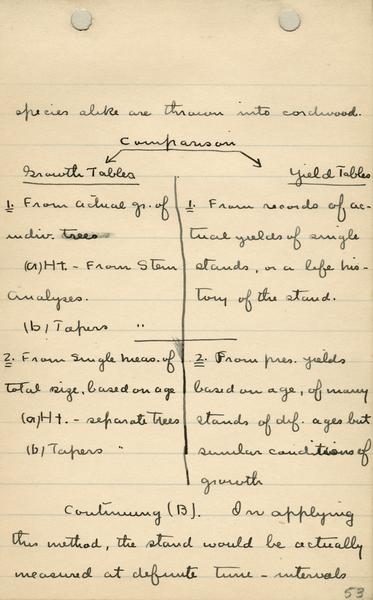 species alike are thrown into cordwood.
Comparison
Growth Tables
1. From actual gr. of
indiv. trees
(a) Ht. - From Stem
Analyses.
(b) Tapers "
2. From single meas. of
total size, based on age
(a) Ht. - separate trees
(b) Tapers "
Yield Tables
1. From records of ac-
tual yields of single
stands, or a life his-
tory of the stand.
2. From pres. yields
based on age, of many
stands of dif. ages but
similar conditions of
growth
Continuing (B). In applying
this method, the stand would be actually
measured at definite time - intervals
53